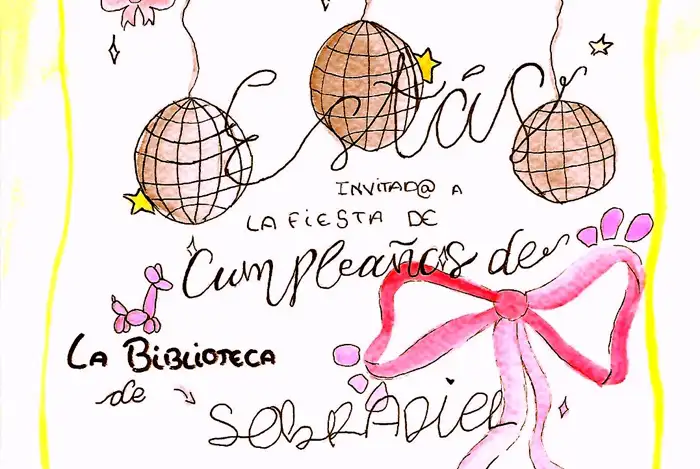 Estás
INVITAD@ A
LA FIESTA DE
Cumpleaños de
LA BIBLIOTECA
de
SOBRADIEL